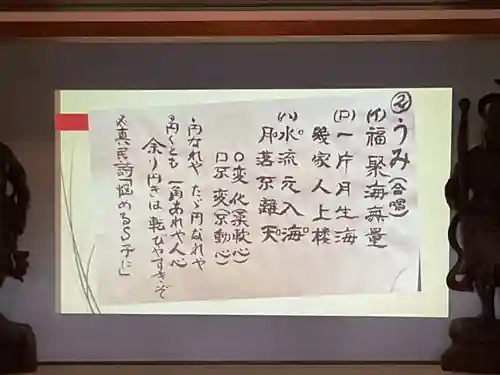 ②うみ(合唱)
(イ)福聚海無量
(ロ)一片月生海
幾家人上楼
(ハ)水流元入海
月落不離天
○変化(柔軟心)
□不変(不動心)
円なれや たゞ円なれや 人心
角くとも 一角あれや人心
余り円きは 転びやすきぞ